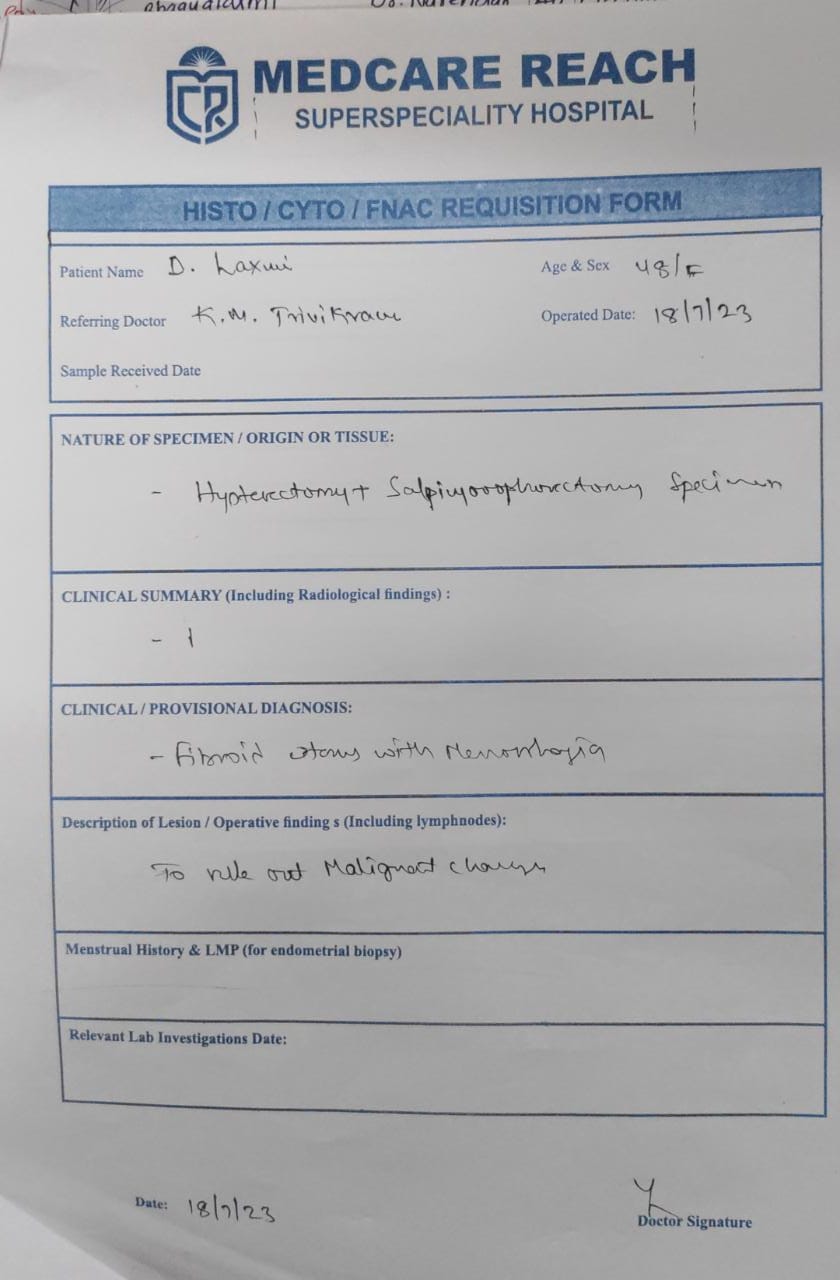 MEDCARE REACH
SUPERSPECIALITY HOSPITAL
HISTO / CYTO / FNAC REQUISITION FORM
Patient Name D. Laxmi Age & Sex 48/F
Referring Doctor K.M. Trivikram Operated Date: 18/7/23
Sample Received Date
NATURE OF SPECIMEN / ORIGIN OR TISSUE:
- Hysterectomy + Salpingoophorectomy Specimen
CLINICAL SUMMARY (Including Radiological findings) :
CLINICAL / PROVISIONAL DIAGNOSIS:
- Fibroid uterus with Menorrhagia
Description of Lesion / Operative finding s (Including lymphnodes):
To rule out Malignant changes
Menstrual History & LMP (for endometrial biopsy)
Relevant Lab Investigations Date:
Date: 18/7/23
Doctor Signature